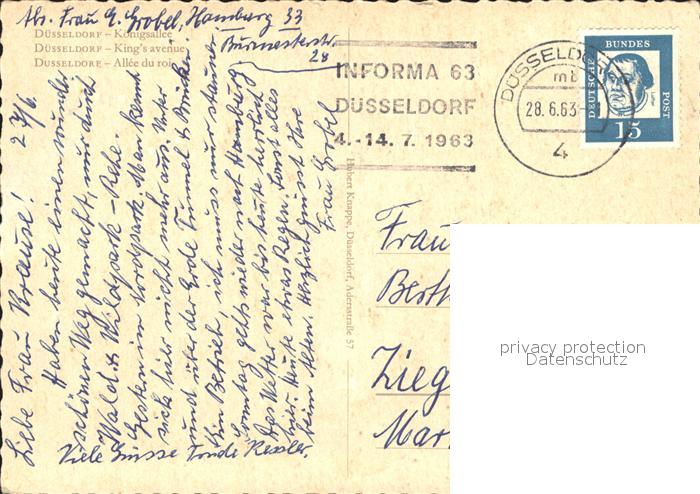 Abs. Frau G. Grobel, Hamburg 33
Burmesterstr.
28
DÜSSELDORF – Königsallee
DÜSSELDORF – King's avenue
DÜSSELDORF – Allée du roi
INFORMA 63
DÜSSELDORF
4.-14. 7. 1963
DÜSSELDORF
mb
28.6.63
4
DEUTSCHE BUNDES POST
15
Liebe Frau Krause! 27/6.
Haben heute einen wunder
schönen Weg gemacht, nur durch
Wald & Wildpark - Rehe.
Gestern im Nordpark. Man kennt
sich hier nicht mehr aus. Unter
und über der Erde Tunnel & Brücken
im Betrieb, ich muss nur staunen
Sonntag gehts wieder nach Hamburg
Das Wetter war bis heute herrlich
hier. Heute etwas Regen. Sonst alles
beim Alten. Herzlich grüsst Ihre
Frau Grobel
Viele Grüsse Kessler.
Hubert Knappe, Düsseldorf, Adersstraße 57
Frau
Berth
Zieg
Mar
privacy protection
Datenschutz